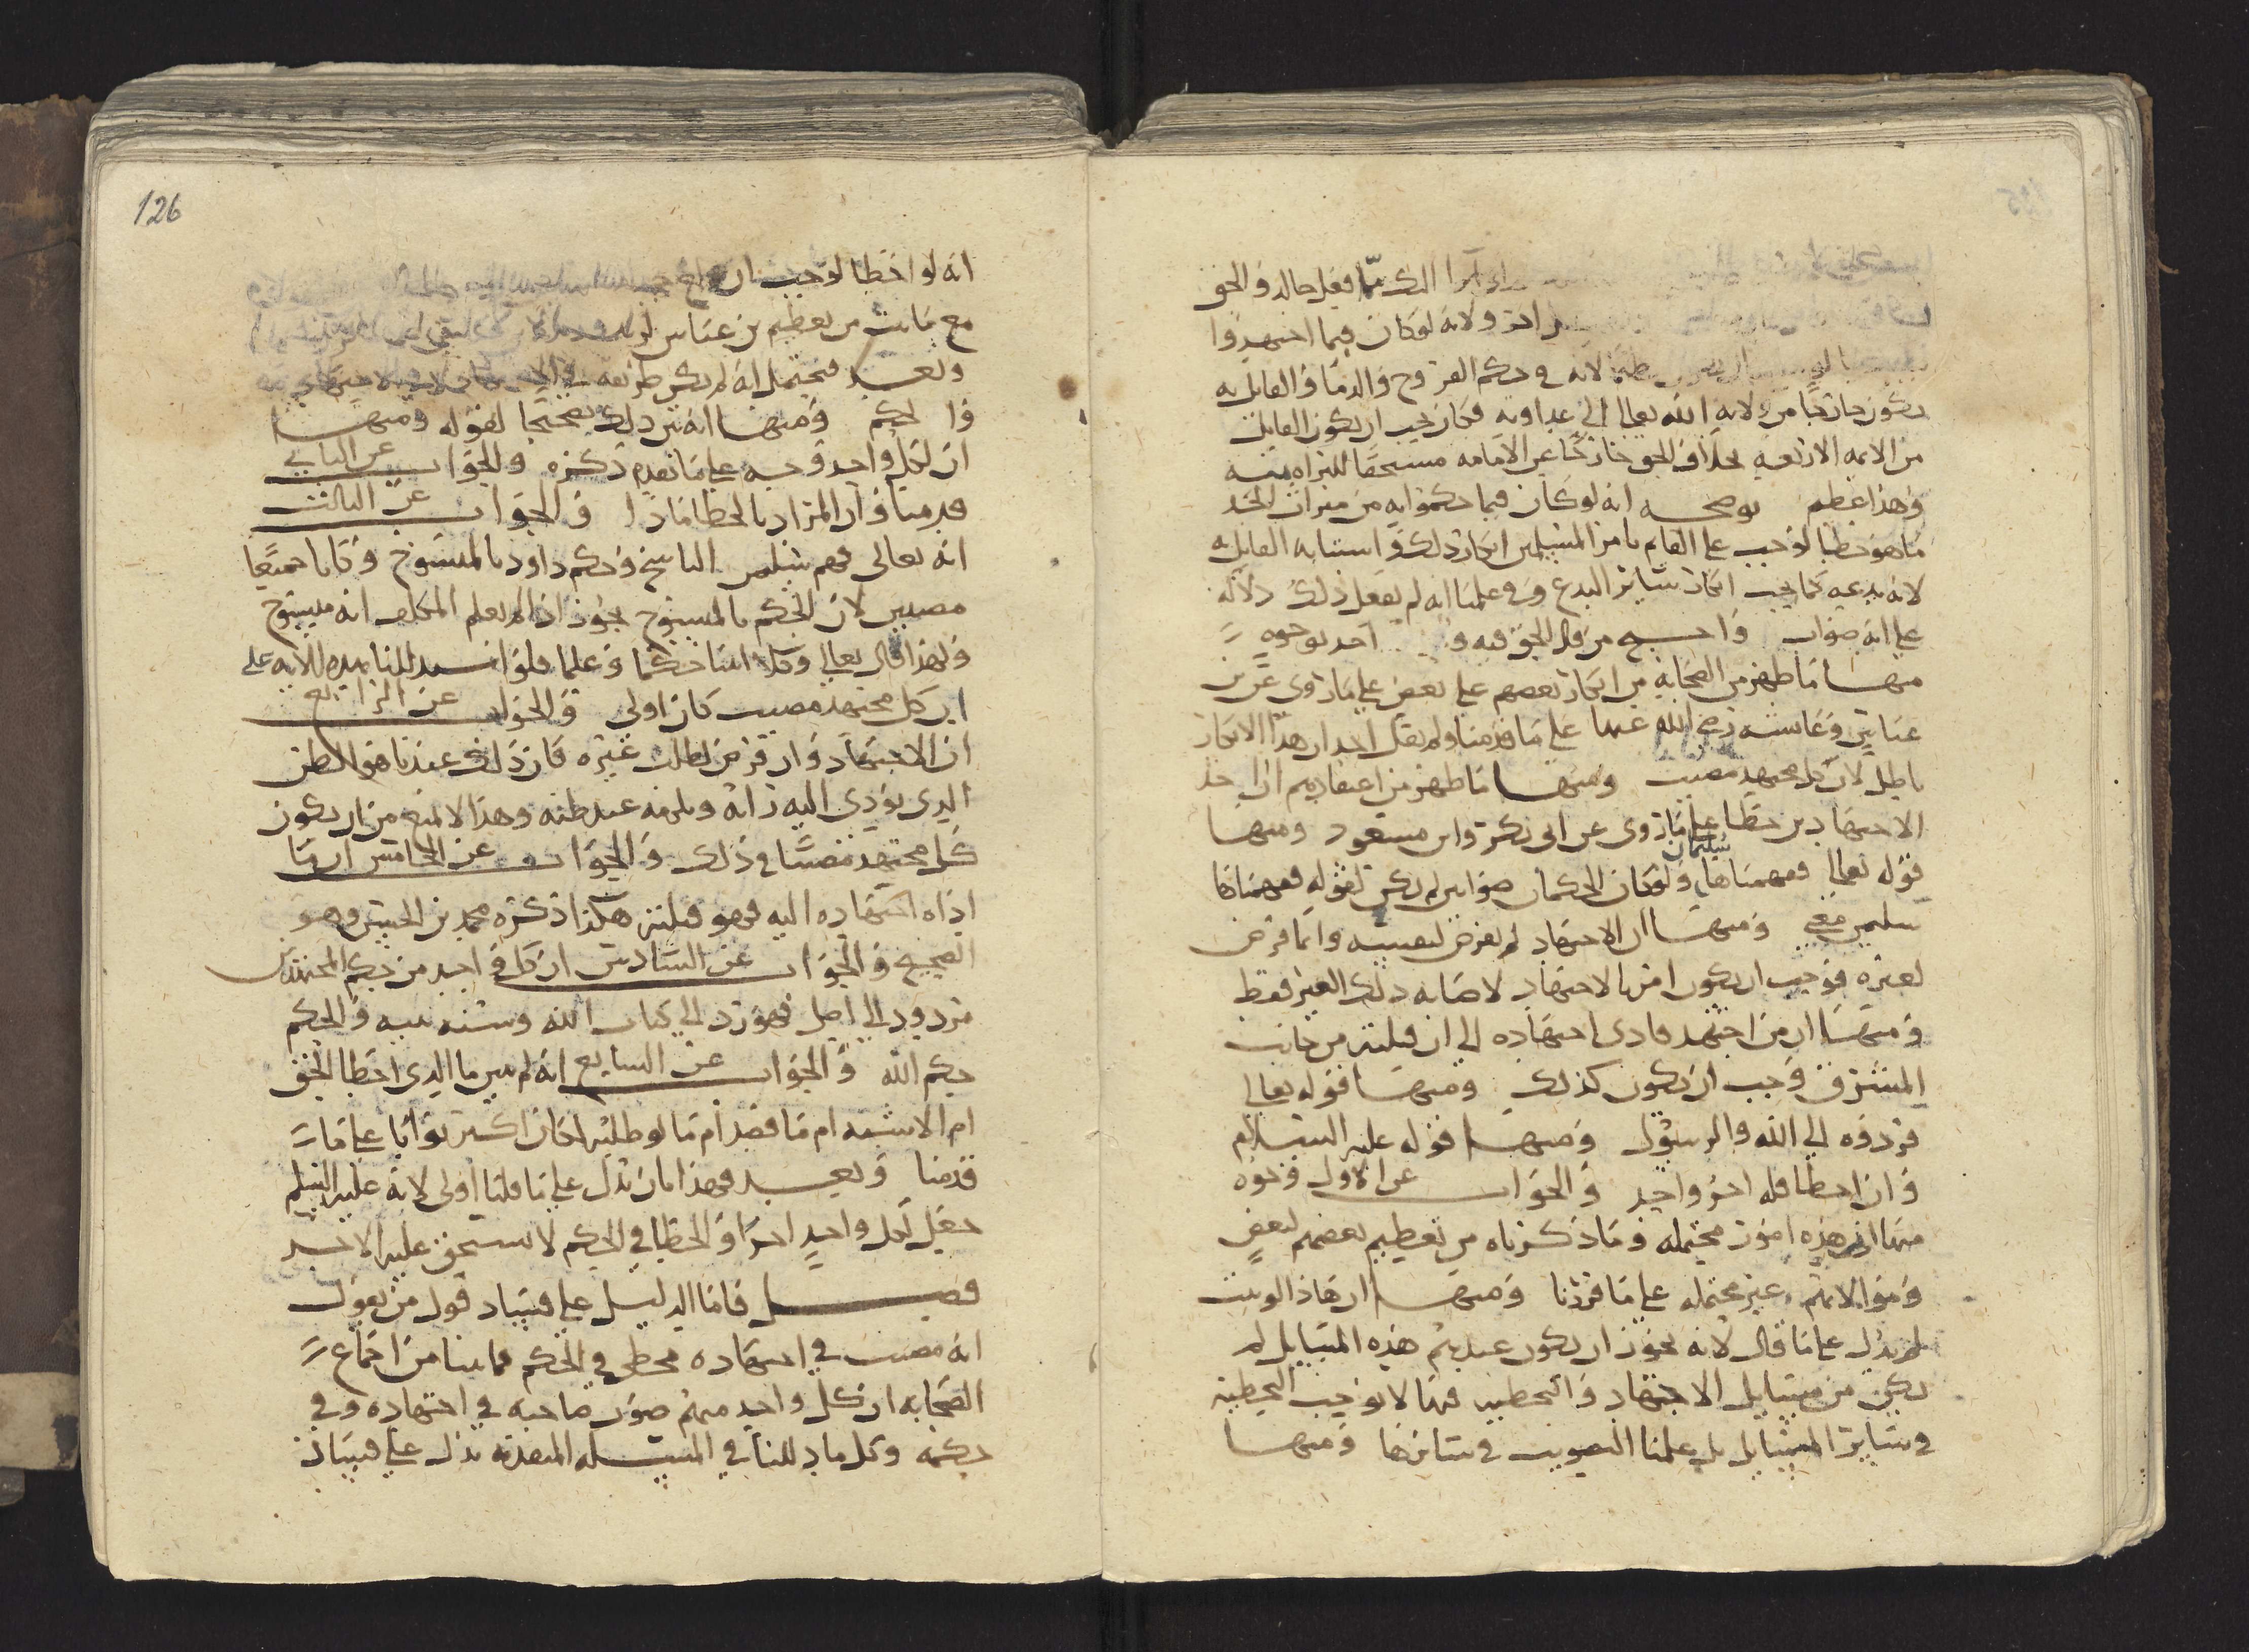 فعل خالد والحق
احد ولانه لو كان فيما اجتهدوا
لانه في حكم الفروج والدما والقايل به
يكون خارجا من ولاية الله تعالى الى عداوته فكان يجب ان يكون القايل
من الايمه الاربعه بخلاف الحق خارجا عن الامامه مستحقا للبراه منه
وهذا عظيم يوضحه انه لو كان فيما حكموا به من ميراث الجد
ما هو خطا لوجب على القايم بامر المسلمين انكار ذلك واستتابه القايل به
لانه بدعه كما يجب انكار ساير البدع وفي علمنا انه لم يفعل ذلك دلاله
على انه صواب واحتج من قال الحق فيه واحد بوجوه
منها ما ظهر من الصحابه من انكار بعضهم على بعض على ما روي عن بن
عباس وعايشه رضي الله عنها على ما قدمنا ولم يقل احد ان هذا الانكار
باطل لان كل مجتهد مصيب ومنها ما ظهر من اعتقادهم ان احد
الاجتهادين خطا على ما روي عن ابي بكر وابن مسعود ومنها
قوله تعالى ففهمناها سليمان ولو كان الحكمان صوابين لم يكن لقوله ففهمناها
سليمن معنى ومنها ان الاجتهاد لم يفرض لنفسه وانما فرض
لغيره فوجب ان يكون امرنا بالاجتهاد لاصابه ذلك الغير فقط
ومنها ان من اجتهد فادى اجتهاده الى ان قبلته من جانب
المشرق وجب ان يكون كذلك ومنها قوله تعالى
فردوه الى الله والرسول ومنها قوله عليه السلام
وان اخطا فله اجر واحد والجواب عن الاول وجوه
منها ان هذه امور محتمله وما ذكرناه من تعظيم بعضهم لبعض
وموالاتهم غير محتمله على ما قررنا ومنها ان هذا لو ثبت
لم يدل على ما قال لانه يجوز ان يكون عندهم هذه المسايل لم
يكن من مسايل الاجتهاد والتخطيه فيها لا يوجب التخطيه
في ساير المسايل بل علمنا التصويب في سايرها ومنها
126
انه لو اخطا لوجب ان
مع ما ثبت من تعظيم بن عباس
وبعد فيحتمل انه لم يكن طريقه
والحكم ومنها انه يرد ذلك تصحيحا لقوله ومنها
ان لكل واحد وجه على ما تقدم ذكره والجواب عن الثاني
قد مضا وان المراد بالخطا ماذا والجواب عن الثالث
انه تعالى فهم سليمن الناسخ وحكم داود بالمنسوخ وكانا جميعا
مصيبين لان الحكم بالمنسوخ يجوز اذا لم يعلم المكلف انه منسوخ
ولهذا قال تعالى وكلا اتينا حكما وعلما فلو استدللنا بهذه الايه على
ان كل مجتهد مصيب كان اولى والجواب عن الرابع
ان الاجتهاد وان فرض لطلب غيره فان ذلك عندنا هو الظن
الذي يودي اليه رايه ويلزمه عند ظنه وهذا لا يمنع من ان يكون
كل مجتهد مصيبا في ذلك والجواب عن الخامس ان ما
اداه اجتهاده اليه فهو قبلته هكذا ذكره محمد بن الحسن وهو
الصحيح والجواب عن السادس ان كل واحد من حكم المجتهدين
مردود الى اصل فهو رد الى كتاب الله وسنه نبيه والحكم
حكم الله والجواب عن السابع انه لم يبين ما الذي اخطا الحق
ام الاشبه ام ما قصد ام ما لو طلبه لكان اكثر ثوابا على ما
قدمنا وبعد فهذا بان يدل على ما قلنا اولى لانه عليه السلم
جعل لكل واحد اجرا والخطا في الحكم لا يستحق عليه الاجر
فصل فاما الدليل على فساد قول من يقول
انه مصيب في اجتهاده مخطي في الحكم فما بينا من اجماع
الصحابه ان كل واحد منهم صوب صاحبه في اجتهاده وفي
حكمه وكل ما دللنا في المسله المتقدمه يدل على فساد